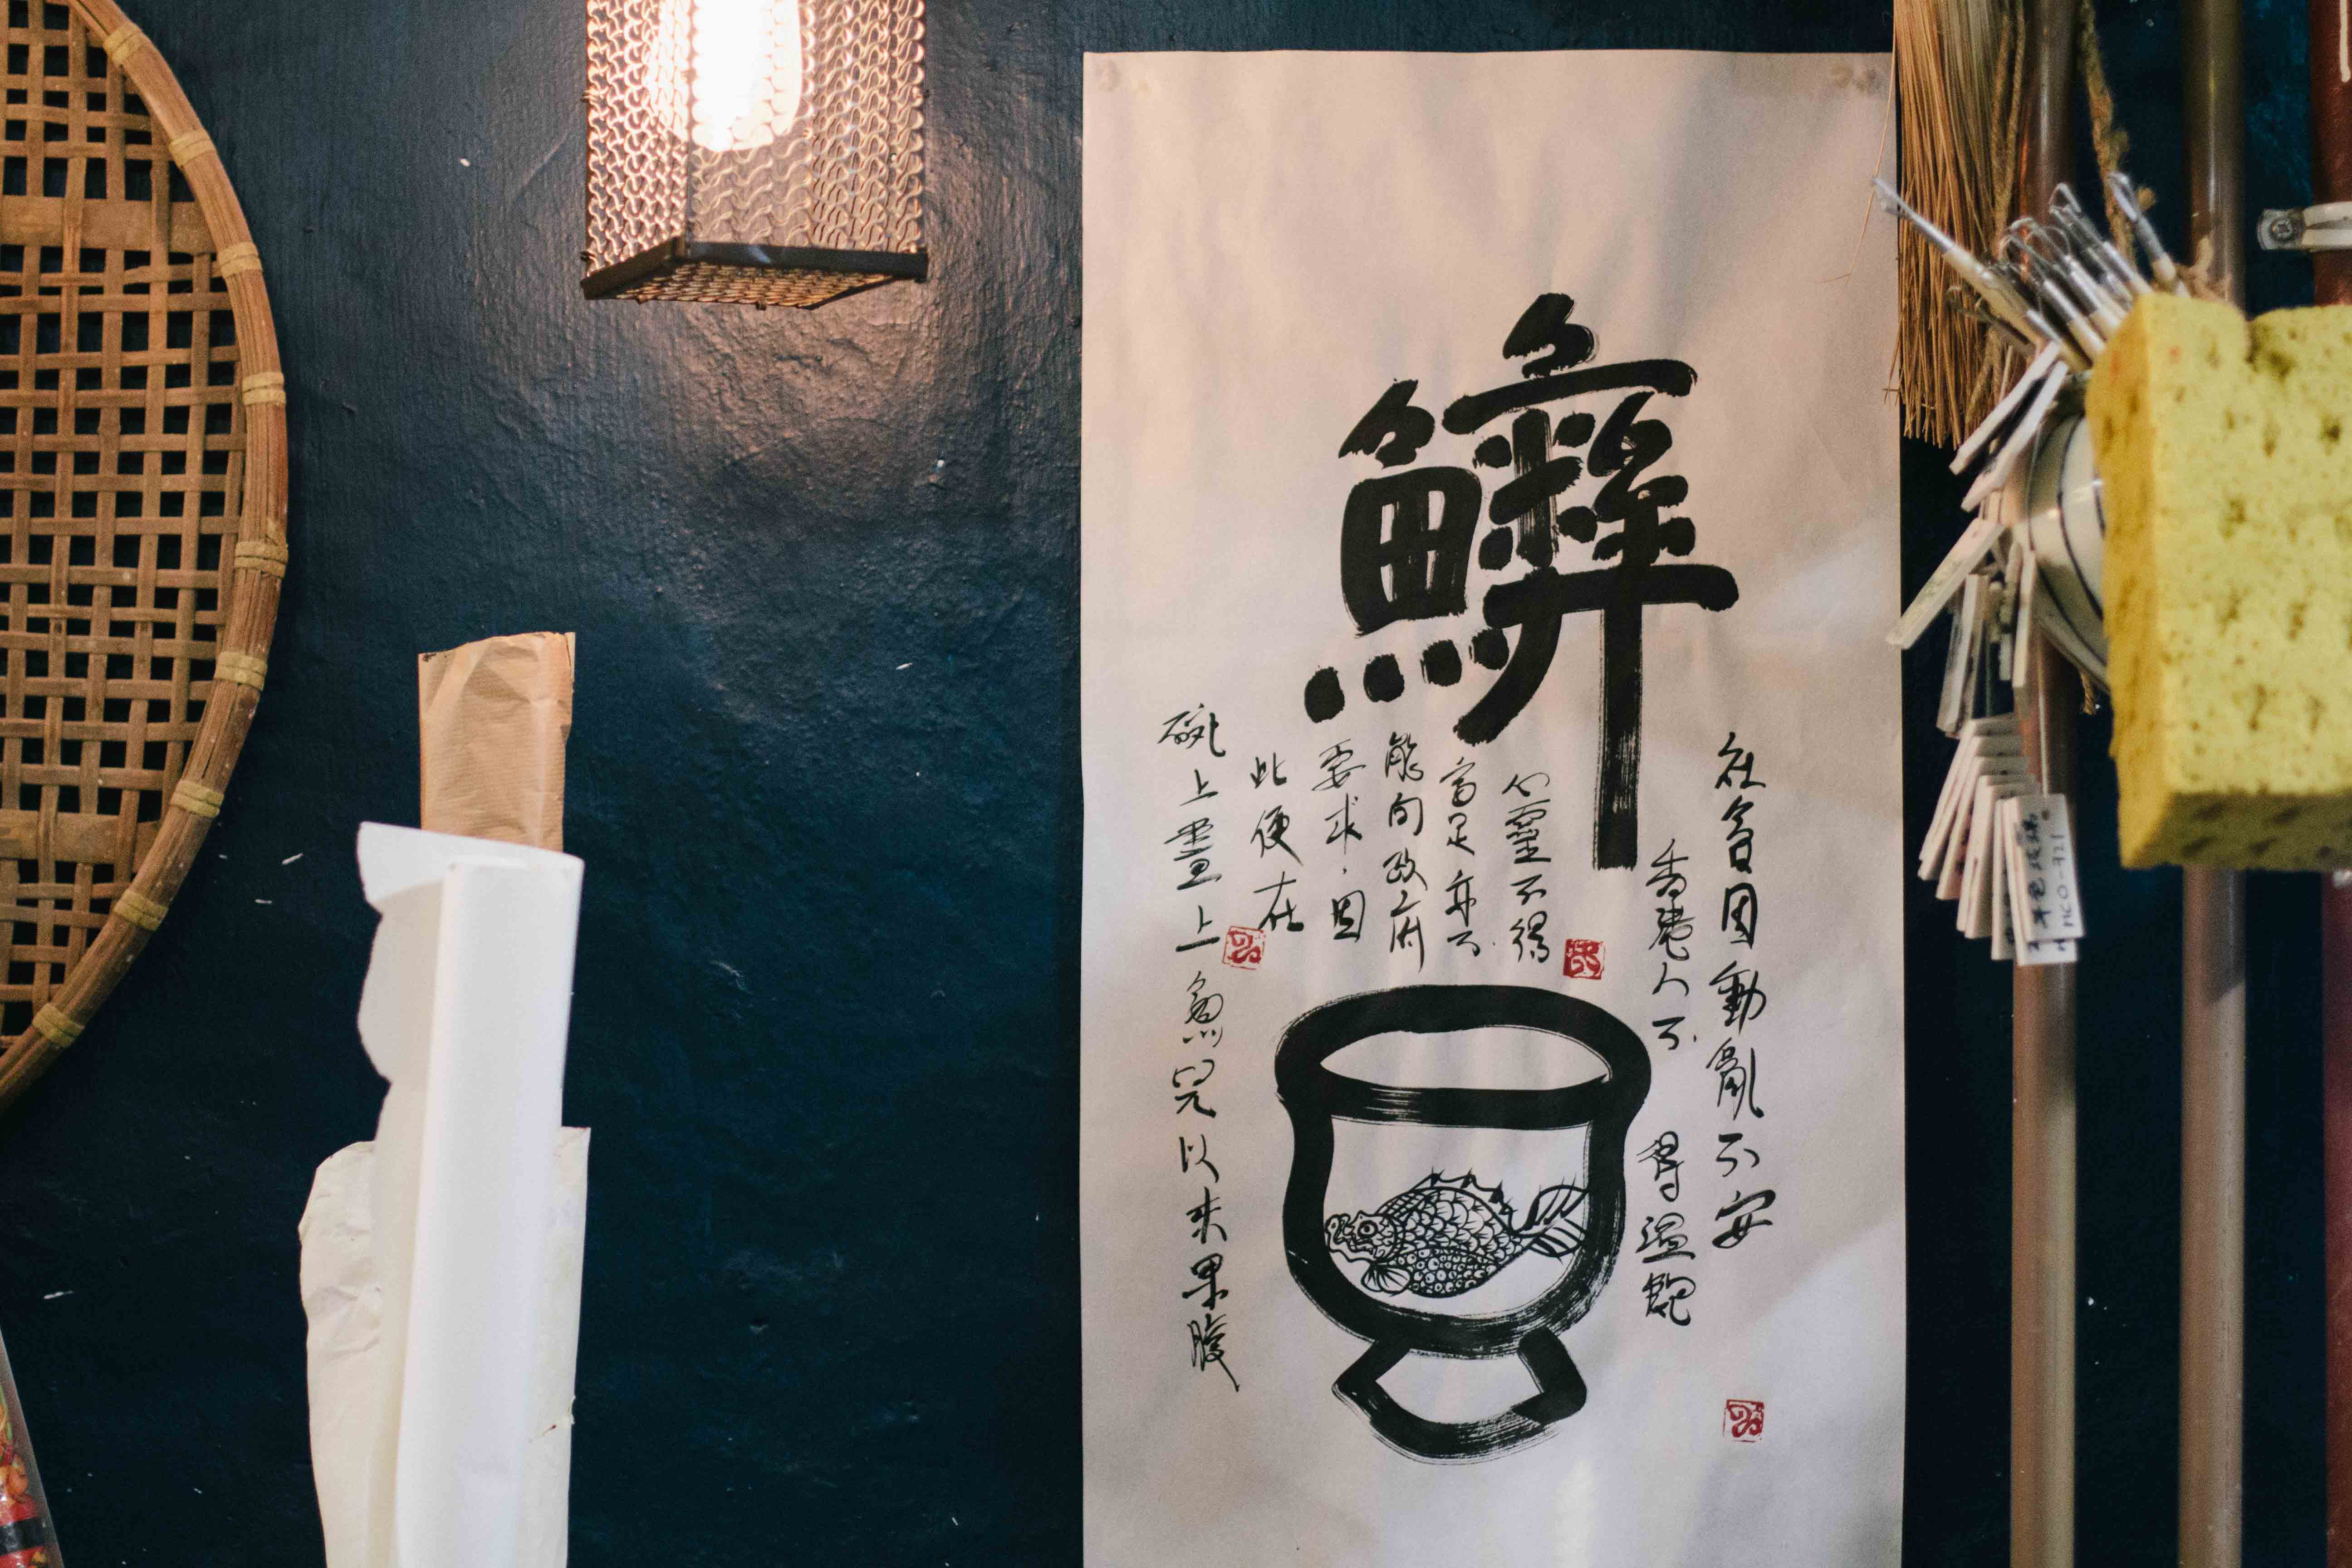 社會因動亂不安
香港人不得溫飽
心靈不得
富足亦不
能向政府
要求，因
此便在
碗上畫上魚兒以求果腹